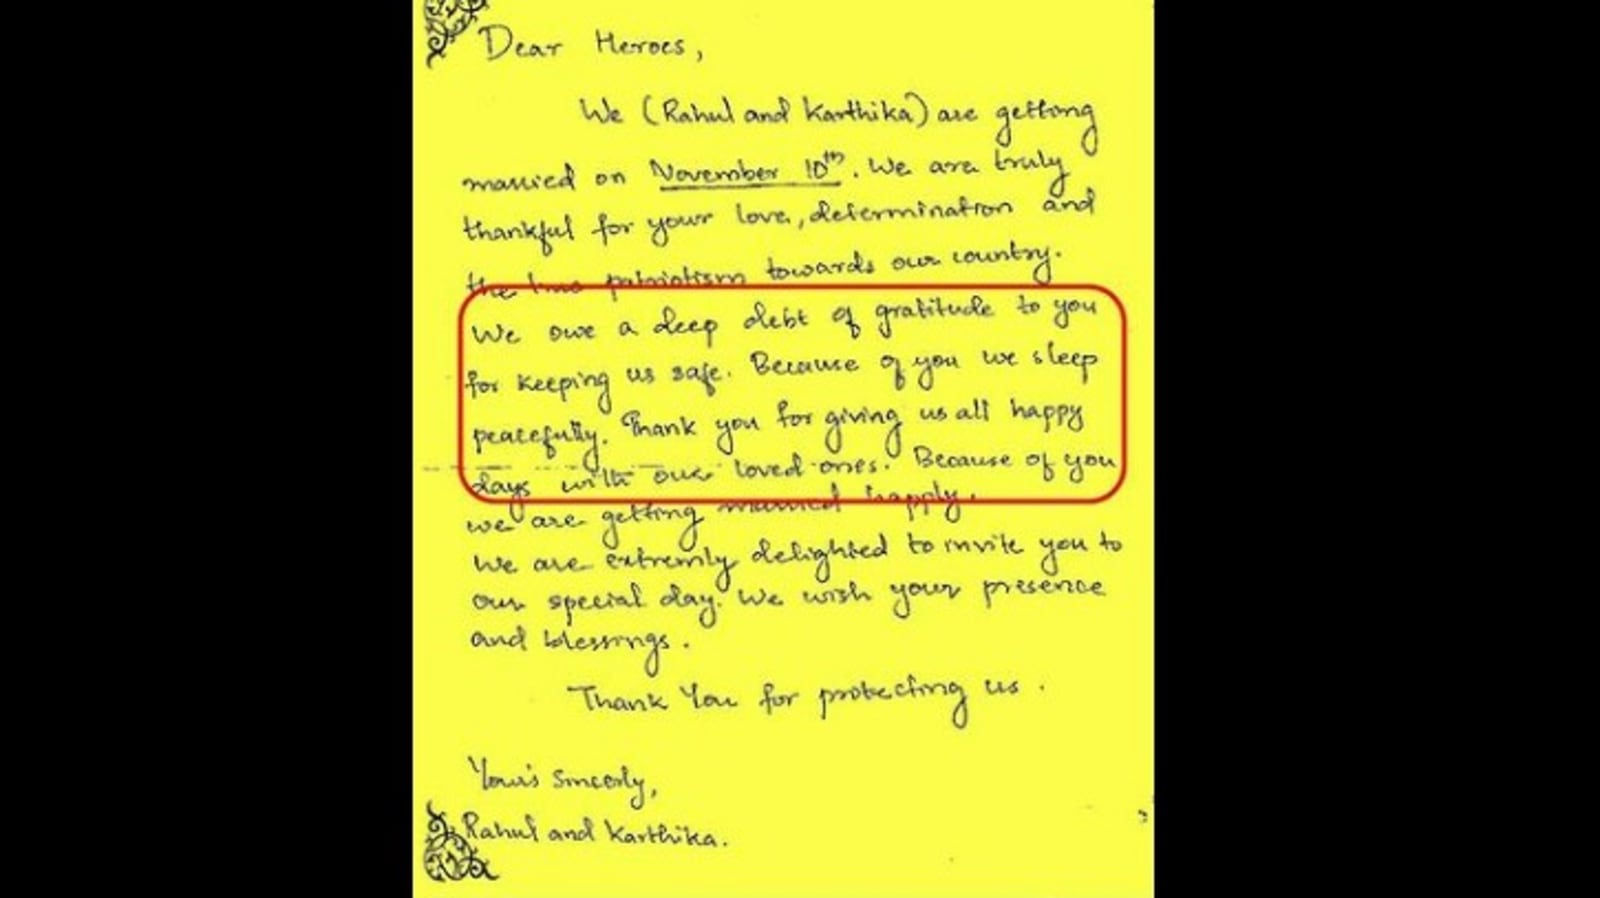 Dear Heroes,
We (Rahul and Karthika) are getting
married on November 10th. We are truly
thankful for your love, determination and
the true patriotism towards our country.
We owe a deep debt of gratitude to you
for keeping us safe. Because of you we sleep
peacefully. Thank you for giving us all happy
days with our loved ones. Because of you
we are getting married happly.
We are extremly delighted to invite you to
our special day. We wish your presence
and blessings.
Thank You for protecting us.
Your's Sincerly,
Rahul and Karthika.